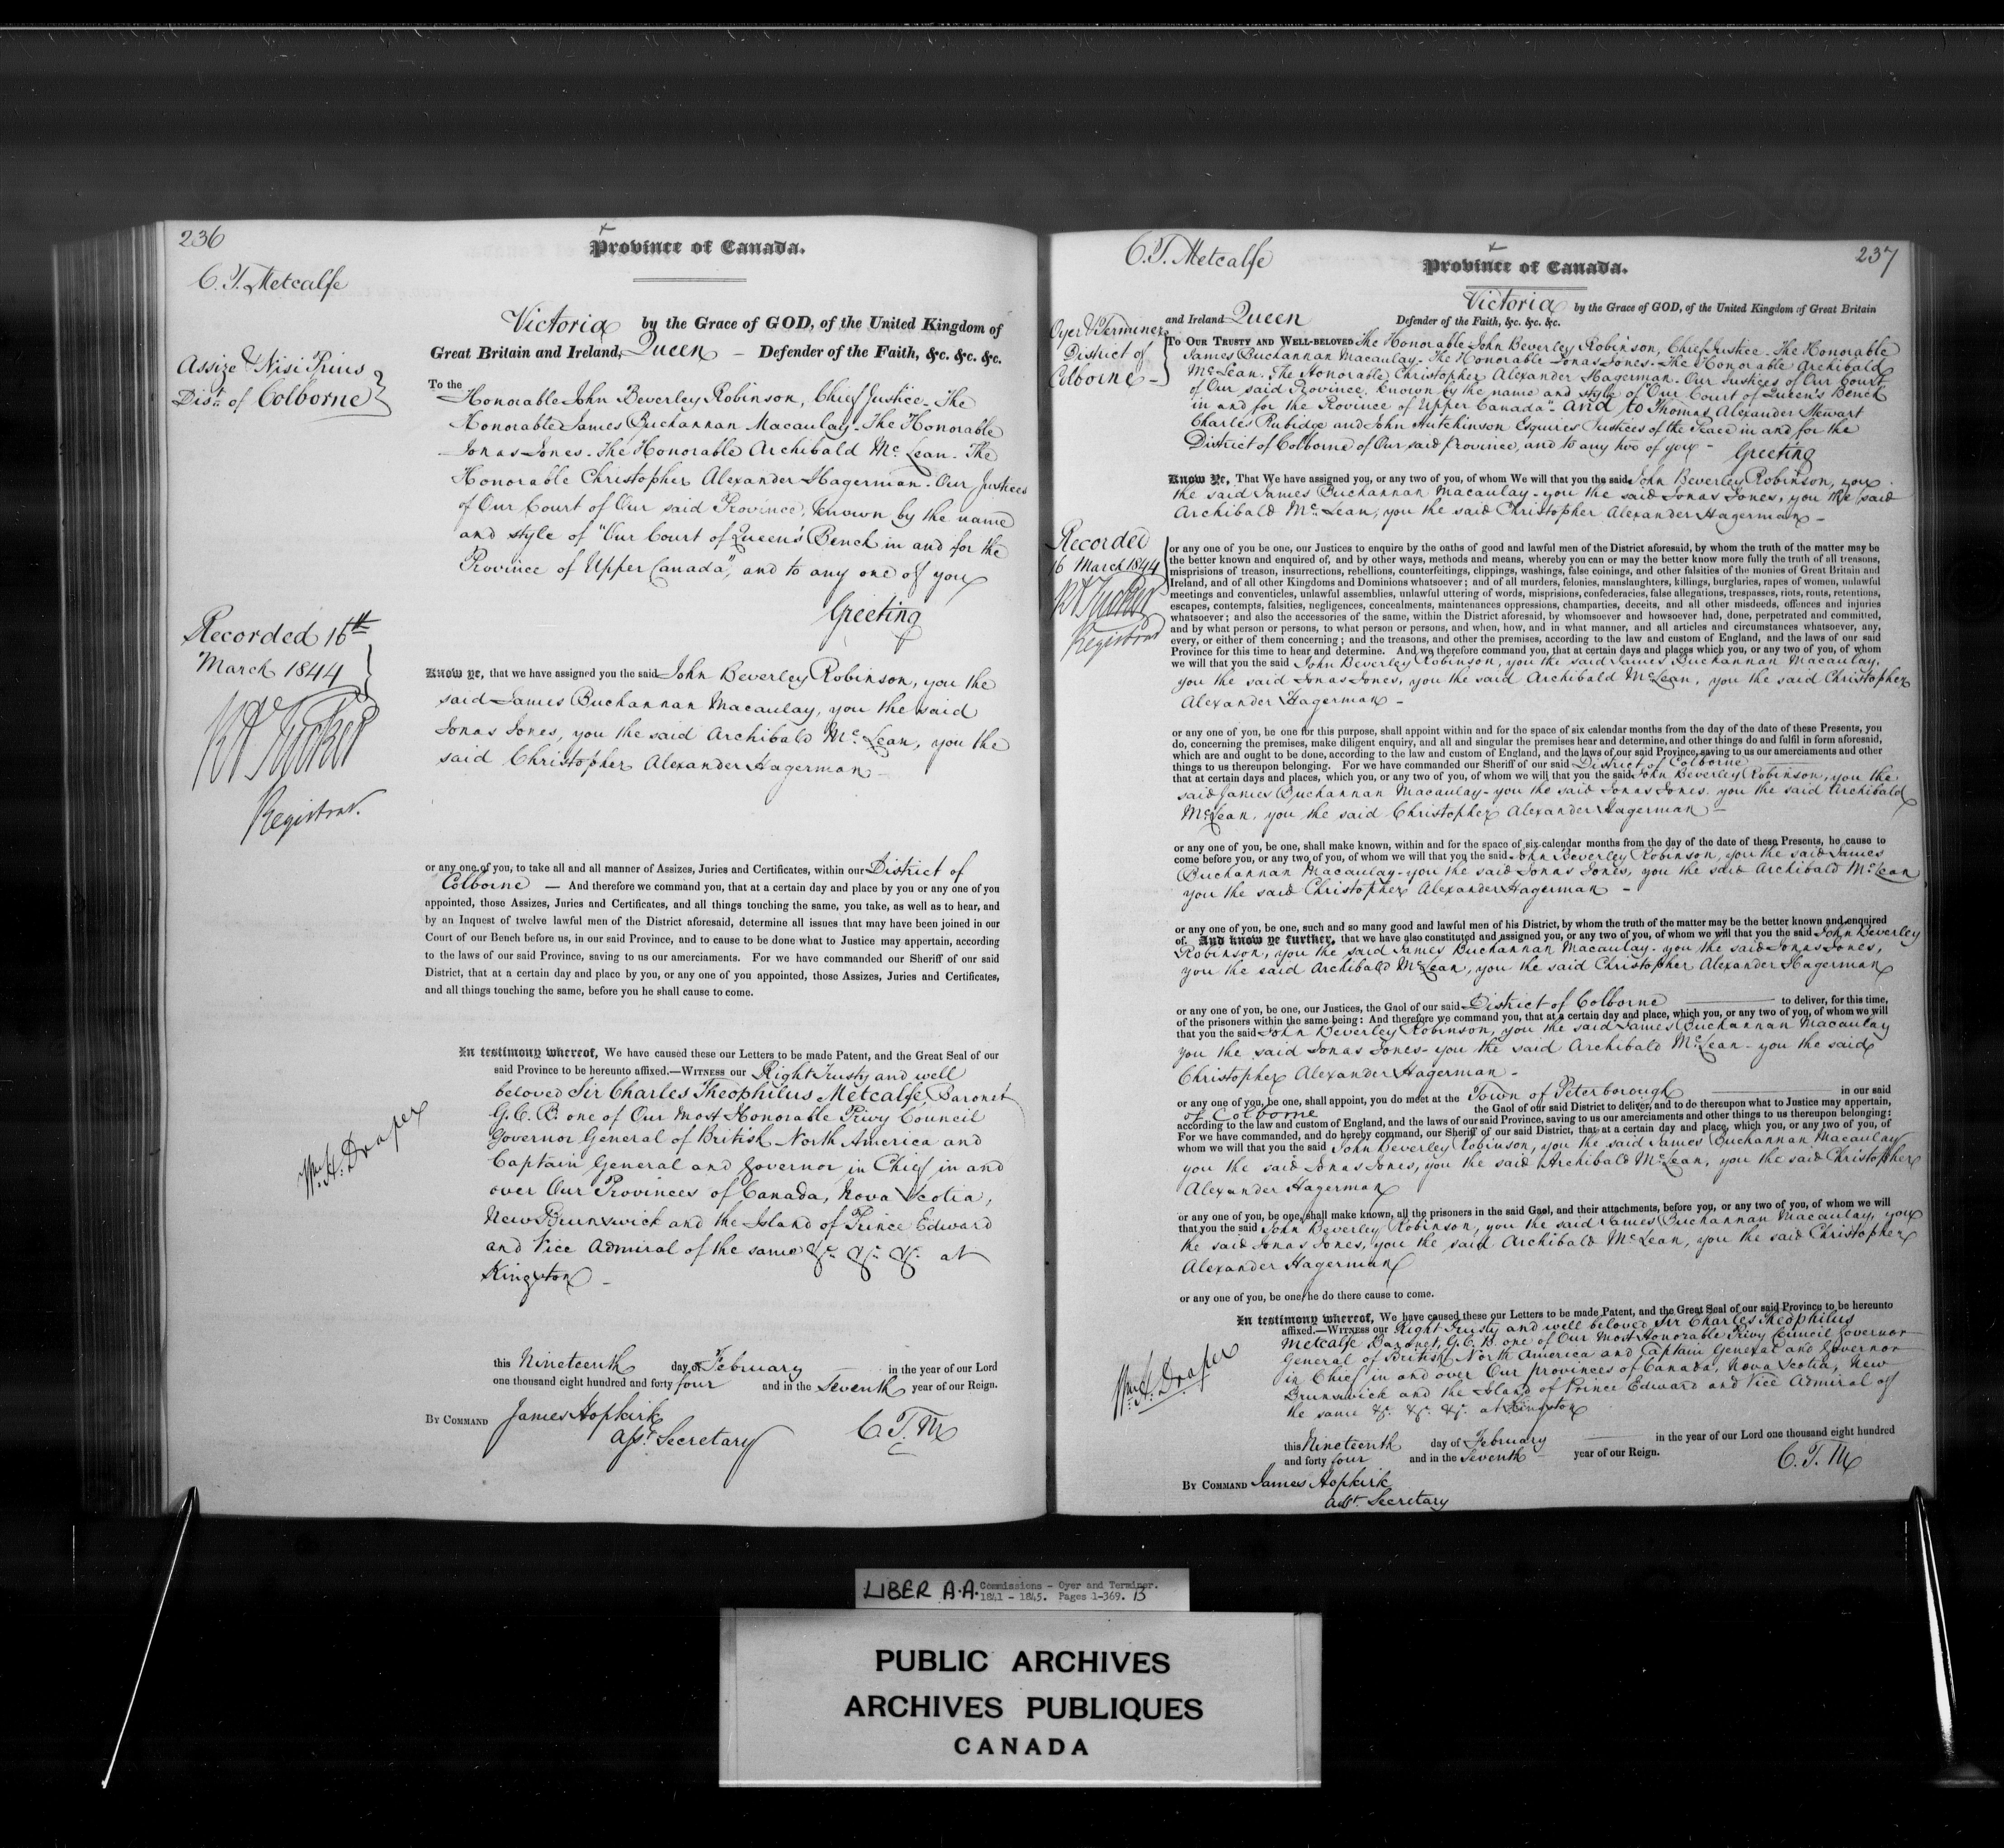 236
Province of Canada.
C. T. Metcalfe
Victoria by the Grace of GOD, of the United Kingdom of
Great Britain and Ireland, Queen — Defender of the Faith, &c. &c. &c.
Assize & Nisi Prius
Dist. of Colborne
To the
Honorable John Beverley Robinson, Chief Justice - The
Honorable James Buchannan Macaulay - The Honorable
Jonas Jones - The Honorable Archibald Mc Lean - The
Honorable Christopher Alexander Hagerman - Our Justices
of Our Court of Our said Province, known by the name
and style of "Our Court of Queen's Bench in and for the
Province of Upper Canada", and to any one of you
Greeting
Recorded 16th
March 1844
R A Tucker
Registrar.
Know ye, that we have assigned you the said John Beverley Robinson, you the
said James Buchannan Macaulay, you the said
Jonas Jones, you the said Archibald Mc Lean, you the
said Christopher Alexander Hagerman -
or any one of you, to take all and all manner of Assizes, Juries and Certificates, within our District of
Colborne — And therefore we command you, that at a certain day and place by you or any one of you
appointed, those Assizes, Juries and Certificates, and all things touching the same, you take, as well as to hear, and
by an Inquest of twelve lawful men of the District aforesaid, determine all issues that may have been joined in our
Court of our Bench before us, in our said Province, and to cause to be done what to Justice may appertain, according
to the laws of our said Province, saving to us our amerciaments. For we have commanded our Sheriff of our said
District, that at a certain day and place by you, or any one of you appointed, those Assizes, Juries and Certificates,
and all things touching the same, before you he shall cause to come.
In testimony whereof, We have caused these our Letters to be made Patent, and the Great Seal of our
said Province to be hereunto affixed.—WITNESS our Right Trusty and well
beloved Sir Charles Theophilus Metcalfe, Baronet
G.C.B. one of Our Most Honorable Privy Council
Governor General of British North America and
Captain General and Governor in Chief in and
over Our Provinces of Canada, Nova Scotia,
New Brunswick and the Island of Prince Edward
and Vice Admiral of the same &c. &c. &c. at
Kingston -
Wm. H. Draper
this Nineteenth day of February — in the year of our Lord
one thousand eight hundred and forty four and in the Seventh year of our Reign.
BY COMMAND James Hopkirk
Asst. Secretary
C. T. M
237
C. T. Metcalfe
Province of Canada.
Victoria by the Grace of GOD, of the United Kingdom of Great Britain
and Ireland Queen Defender of the Faith, &c. &c. &c.
Oyer & Terminer
District of
Colborne -
TO OUR TRUSTY AND WELL-BELOVED The Honorable John Beverley Robinson, Chief Justice - The Honorable
James Buchannan Macaulay - The Honorable Jonas Jones - The Honorable Archibald
Mc Lean. The Honorable Christopher Alexander Hagerman - Our Justices of Our Court
of Our said Province, known by the name and style of "Our Court of Queen's Bench
in and for the Province of Upper Canada" - and to Thomas Alexander Stewart
Charles Rubidge and John Hutchinson Esquires Justices of the Peace in and for the
District of Colborne of Our said Province, and to any two of you -
Greeting
Know Ye, That We have assigned you, or any two of you, of whom We will that you the said John Beverley Robinson, you
the said James Buchannan Macaulay - you the said Jonas Jones, you the said
Archibald Mc Lean, you the said Christopher Alexander Hagerman -
Recorded
16 March 1844
R A Tucker
Registrar
or any one of you be one, our Justices to enquire by the oaths of good and lawful men of the District aforesaid, by whom the truth of the matter may be
the better known and enquired of, and by other ways, methods and means, whereby you can or may the better know more fully the truth of all treasons,
misprisions of treason, insurrections, rebellions, counterfeitings, clippings, washings, false coinings, and other falsities of the monies of Great Britain and
Ireland, and of all other Kingdoms and Dominions whatsoever; and of all murders, felonies, manslaughters, killings, burglaries, rapes of women, unlawful
meetings and conventicles, unlawful assemblies, unlawful uttering of words, misprisions, confederacies, false allegations, trespasses, riots, routs, retentions,
escapes, contempts, falsities, negligences, concealments, maintenances oppressions, champarties, deceits, and all other misdeeds, offences and injuries
whatsoever; and also the accessories of the same, within the District aforesaid, by whomsoever and howsoever had, done, perpetrated and committed,
and by what person or persons, to what person or persons, and when, how, and in what manner, and all articles and circumstances whatsoever, any,
every, or either of them concerning; and the treasons, and other the premises, according to the law and custom of England, and the laws of our said
Province for this time to hear and determine. And we therefore command you, that at certain days and places which you, or any two of you, of whom
we will that you the said John Beverley Robinson, you the said James Buchannan Macaulay,
you the said Jonas Jones, you the said Archibald McLean, you the said Christopher
Alexander Hagerman -
or any one of you, be one for this purpose, shall appoint within and for the space of six calendar months from the day of the date of these Presents, you
do, concerning the premises, make diligent enquiry, and all and singular the premises hear and determine, and other things do and fulfil in form aforesaid,
which are and ought to be done, according to the law and custom of England, and the laws of our said Province, saving to us our amerciaments and other
things to us thereupon belonging. For we have commanded our Sheriff of our said District of Colborne
that at certain days and places, which you, or any two of you, of whom we will that you the said John Beverley Robinson, you the
said James Buchannan Macaulay - you the said Jonas Jones. you the said Archibald
McLean, you the said Christopher Alexander Hagerman —
or any one of you, be one, shall make known, within and for the space of six calendar months from the day of the date of these Presents, he cause to
come before you, or any two of you, of whom we will that you the said John Beverley Robinson, you the said James
Buchannan Macaulay - you the said Jonas Jones, you the said Archibald McLean
you the said Christopher Alexander Hagerman -
or any one of you, be one, such and so many good and lawful men of his District, by whom the truth of the matter may be the better known and enquired
of. And know ye further, that we have also constituted and assigned you, or any two of you, of whom we will that you the said John Beverley
Robinson, you the said James Buchannan Macaulay - you the said Jonas Jones,
you the said Archibald McLean, you the said Christopher Alexander Hagerman
or any one of you, be one, our Justices, the Gaol of our said District of Colborne — to deliver, for this time,
of the prisoners within the same being: And therefore we command you, that at a certain day and place, which you, or any two of you, of whom we will
that you the said John Beverley Robinson, you the said James Buchannan Macaulay
you the said Jonas Jones - you the said Archibald McLean - you the said
Christopher Alexander Hagerman -
or any one of you, be one, shall appoint, you do meet at the Town of Peterborough — in our said
of Colborne the Gaol of our said District to deliver, and to do thereupon what to Justice may appertain,
according to the law and custom of England, and the laws of our said Province, saving to us our amerciaments and other things to us thereupon belonging:
For we have commanded, and do hereby command, our Sheriff of our said District, that at a certain day and place, which you, or any two of you, of
whom we will that you the said John Beverley Robinson, you the said James Buchannan Macaulay
you the said Jonas Jones, you the said Archibald McLean, you the said Christopher
Alexander Hagerman
or any one of you, be one, shall make known, all the prisoners in the said Gaol, and their attachments, before you, or any two of you, of whom we will
that you the said John Beverley Robinson, you the said James Buchannan Macaulay, you
the said Jonas Jones, you the said Archibald McLean, you the said Christopher
Alexander Hagerman
or any one of you, be one, he do there cause to come.
In testimony whereof, We have caused these our Letters to be made Patent, and the Great Seal of our said Province to be hereunto
affixed.—WITNESS our Right Trusty and well beloved Sir Charles Theophilus
Metcalfe Baronet, G.C.B. one of Our Most Honorable Privy Council Governor
General of British North America and Captain General and Governor
in Chief in and over Our provinces of Canada, Nova Scotia, New
Brunswick and the Island of Prince Edward and Vice Admiral of
the same &c. &c. &c. at Kingston
Wm. H. Draper
this Nineteenth day of February — in the year of our Lord one thousand eight hundred
and forty four and in the Seventh year of our Reign.
C. T. M
BY COMMAND James Hopkirk
Asst. Secretary
LIBER A.A. Commissions - Oyer and Terminer.
1841 - 1845. Pages 1-369. B
PUBLIC ARCHIVES
ARCHIVES PUBLIQUES
CANADA